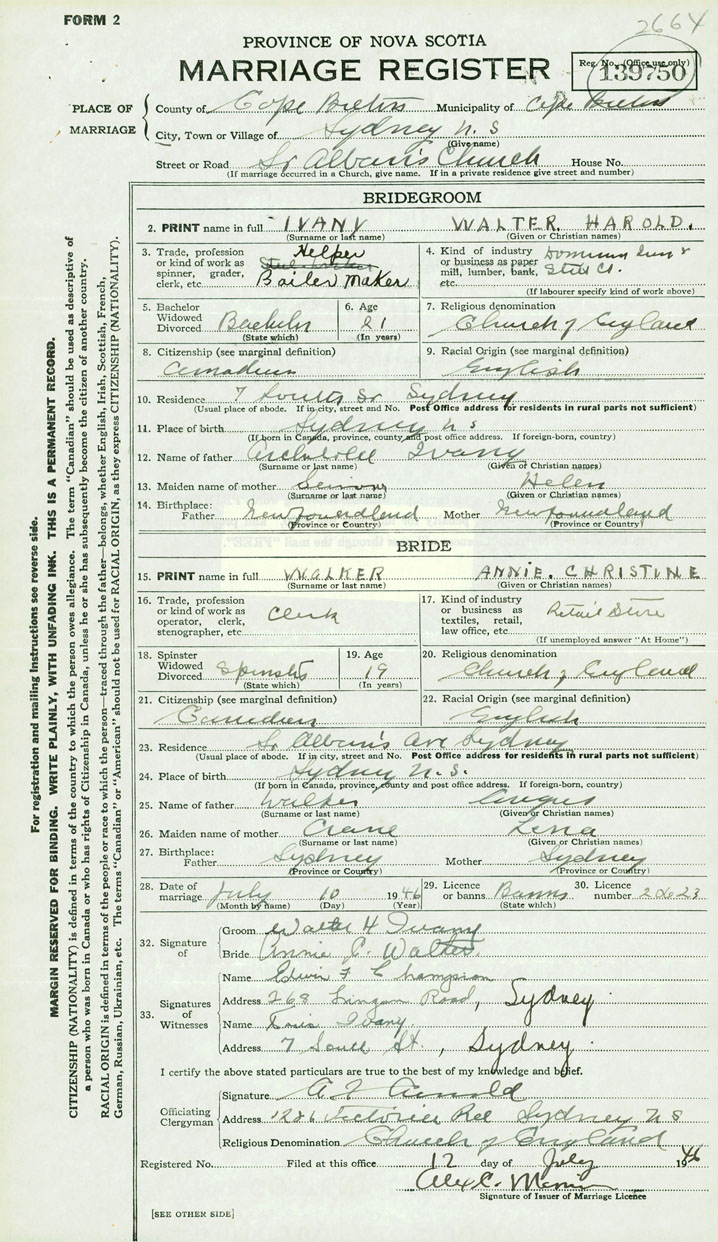 FORM 2
2664
PROVINCE OF NOVA SCOTIA
MARRIAGE REGISTER
Reg. No. (Office use only)
139750
PLACE OF MARRIAGE
County of Cape Breton Municipality of Cape Breton
City, Town or Village of Sydney N.S
(Give name)
Street or Road St Alban's Church House No.
(If marriage occurred in a Church, give name. If in a private residence give street and number)
BRIDEGROOM
2. PRINT name in full IVANY WALTER HAROLD.
(Surname or last name) (Given or Christian names)
3. Trade, profession or kind of work as spinner, grader, clerk, etc. Helper Boiler Maker
4. Kind of industry or business as paper mill, lumber, bank, etc. Steel Co.
(If labourer specify kind of work above)
5. Bachelor Widowed Divorced Bachelor
(State which)
6. Age 21
(In years)
7. Religious denomination
Church of England
8. Citizenship (see marginal definition)
Canadian
9. Racial Origin (see marginal definition)
English
10. Residence 7 South St Sydney
(Usual place of abode. If in city, street and No. Post Office address for residents in rural parts not sufficient)
11. Place of birth Sydney N S
(If born in Canada, province, county and post office address. If foreign-born, country)
12. Name of father Ivany
(Surname or last name) (Given or Christian names)
13. Maiden name of mother Helen
(Surname or last name) (Given or Christian names)
14. Birthplace: Father Newfoundland Mother Newfoundland
(Province or Country) (Province or Country)
BRIDE
15. PRINT name in full WALKER ANNIE. CHRISTINE
(Surname or last name) (Given or Christian names)
16. Trade, profession or kind of work as operator, clerk, stenographer, etc. Clerk
17. Kind of industry or business as textiles, retail, law office, etc. Retail Store
(If unemployed answer "At Home")
18. Spinster Widowed Divorced Spinster
(State which)
19. Age 19
(In years)
20. Religious denomination
Church of England
21. Citizenship (see marginal definition)
Canadian
22. Racial Origin (see marginal definition)
English
23. Residence St Alban's Ave Sydney
(Usual place of abode. If in city, street and No. Post Office address for residents in rural parts not sufficient)
24. Place of birth Sydney N.S.
(If born in Canada, province, county and post office address. If foreign-born, country)
25. Name of father Walker Angus
(Surname or last name) (Given or Christian names)
26. Maiden name of mother Crane Lena
(Surname or last name) (Given or Christian names)
27. Birthplace: Father Sydney Mother Sydney
(Province or Country) (Province or Country)
28. Date of marriage July 10 1946
(Month by name) (Day) (Year)
29. Licence or banns Banns
(State which)
30. Licence number 20623
32. Signature of
Groom Walter H Ivany
Bride Annie C. Walker.
33. Signatures of Witnesses
Name Edwin F Champion
Address 268 Lingan Road, Sydney
Name Ivany
Address 7 South St., Sydney
I certify the above stated particulars are true to the best of my knowledge and belief.
Officiating Clergyman
Signature A F Arnold
Address 1286 Victoria Rd Sydney N S
Religious Denomination Church of England
Registered No. Filed at this office 12 day of July 1946
Alex C.
Signature of Issuer of Marriage Licence
[SEE OTHER SIDE]
For registration and mailing Instructions see reverse side.
MARGIN RESERVED FOR BINDING. WRITE PLAINLY, WITH UNFADING INK. THIS IS A PERMANENT RECORD.
CITIZENSHIP (NATIONALITY) is defined in terms of the country to which the person owes allegiance. The term "Canadian" should be used as descriptive of
a person who was born in Canada or who has rights of Citizenship in Canada, unless he or she has subsequently become the citizen of another country.
RACIAL ORIGIN is defined in terms of the people or race to which the person—traced through the father—belongs, whether English, Irish, Scottish, French,
German, Russian, Ukrainian, etc. The terms "Canadian" or "American" should not be used for RACIAL ORIGIN, as they express CITIZENSHIP (NATIONALITY).